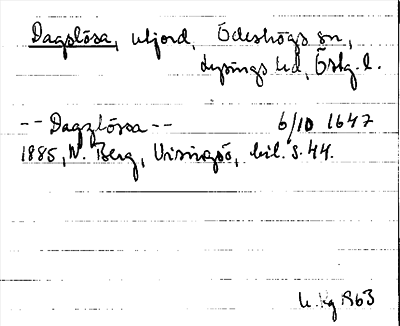 Dagslösa, utjord, Ödeshögs sn,
Lysings hd, Östg. l.
-- Dagzlössa -- 6/10 1647
1885, N. Berg, Visingsö, bil. s. 44.
863